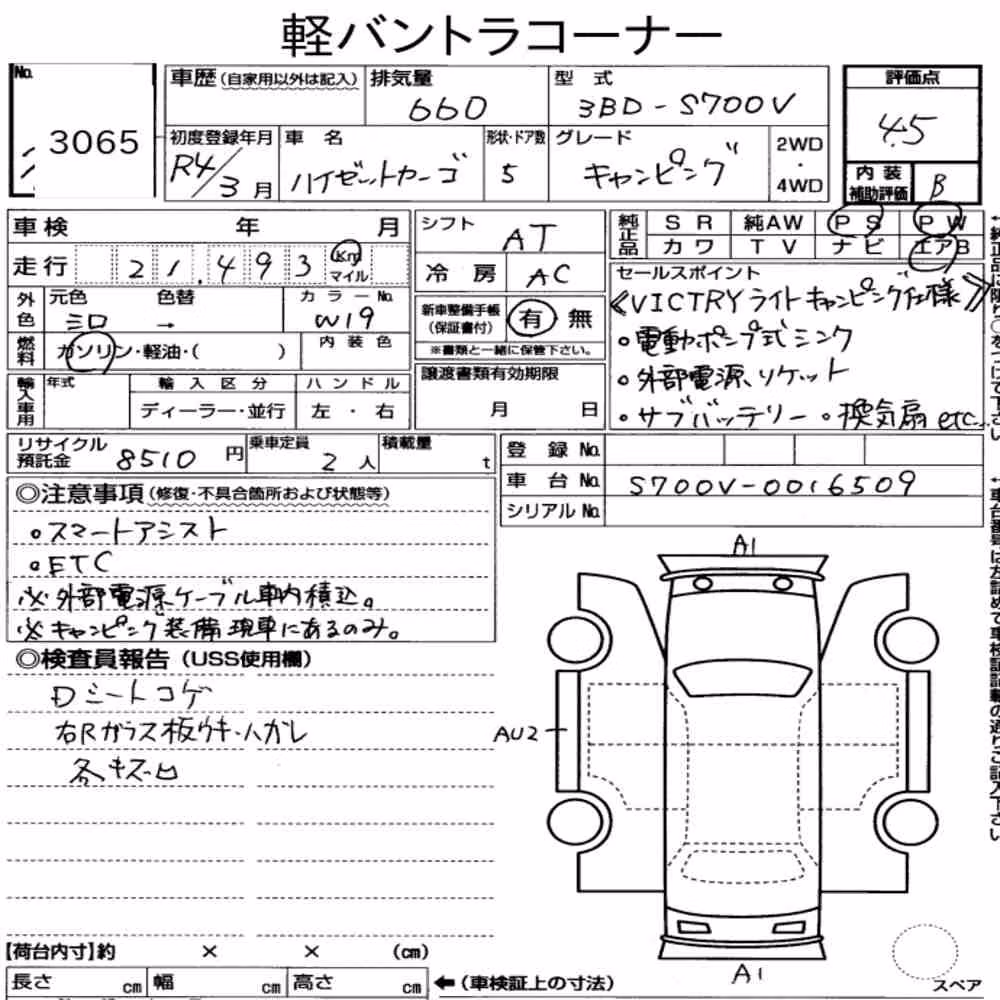 軽バントラコーナー
No.
3065
車歴(自家用以外は記入)
排気量
660
型 式
3BD-S700V
評価点
4.5
初度登録年月
R4/3月
車 名
ハイゼットカーゴ
形状・ドア数
5
グレード
キャンピング
2WD
・
4WD
内 装
補助評価
B
車検 年 月
シフト
AT
純正品
S R 純AW P S P W
カワ T V ナビ エアB
走行 21,493 Km
マイル
冷 房
AC
セールスポイント
《VICTRYライトキャンピング仕様》
○電動ポンプ式シンク
○外部電源ソケット
○サブバッテリー ○換気扇 etc...
外色
元色 色替
カラーNo.
→ W19
新車整備手帳
(保証書付)
有 無
※書類と一緒に保管下さい。
燃料
ガソリン・軽油・( )
内 装 色
譲渡書類有効期限
月 日
輸入車用
年式
輸 入 区 分
ハ ン ド ル
ディーラー・並行
左 ・ 右
リサイクル
預託金
8510円
乗車定員
2人
積載量
t
登 録 No.
車 台 No.
S700V-0016509
シリアル No.
◎注意事項(修復・不具合箇所および状態等)
○スマートアシスト
○ETC
※外部電源ケーブル車内積込。
※キャンピング装備現車にあるのみ。
◎検査員報告(USS使用欄)
Dシートコゲ
右Rガラス板ウキ・ハガレ
各キズ凹
A1
AU2
A1
スペア
【荷台内寸】約 × × (cm)
長さ cm 幅 cm 高さ cm
←(車検証上の寸法)